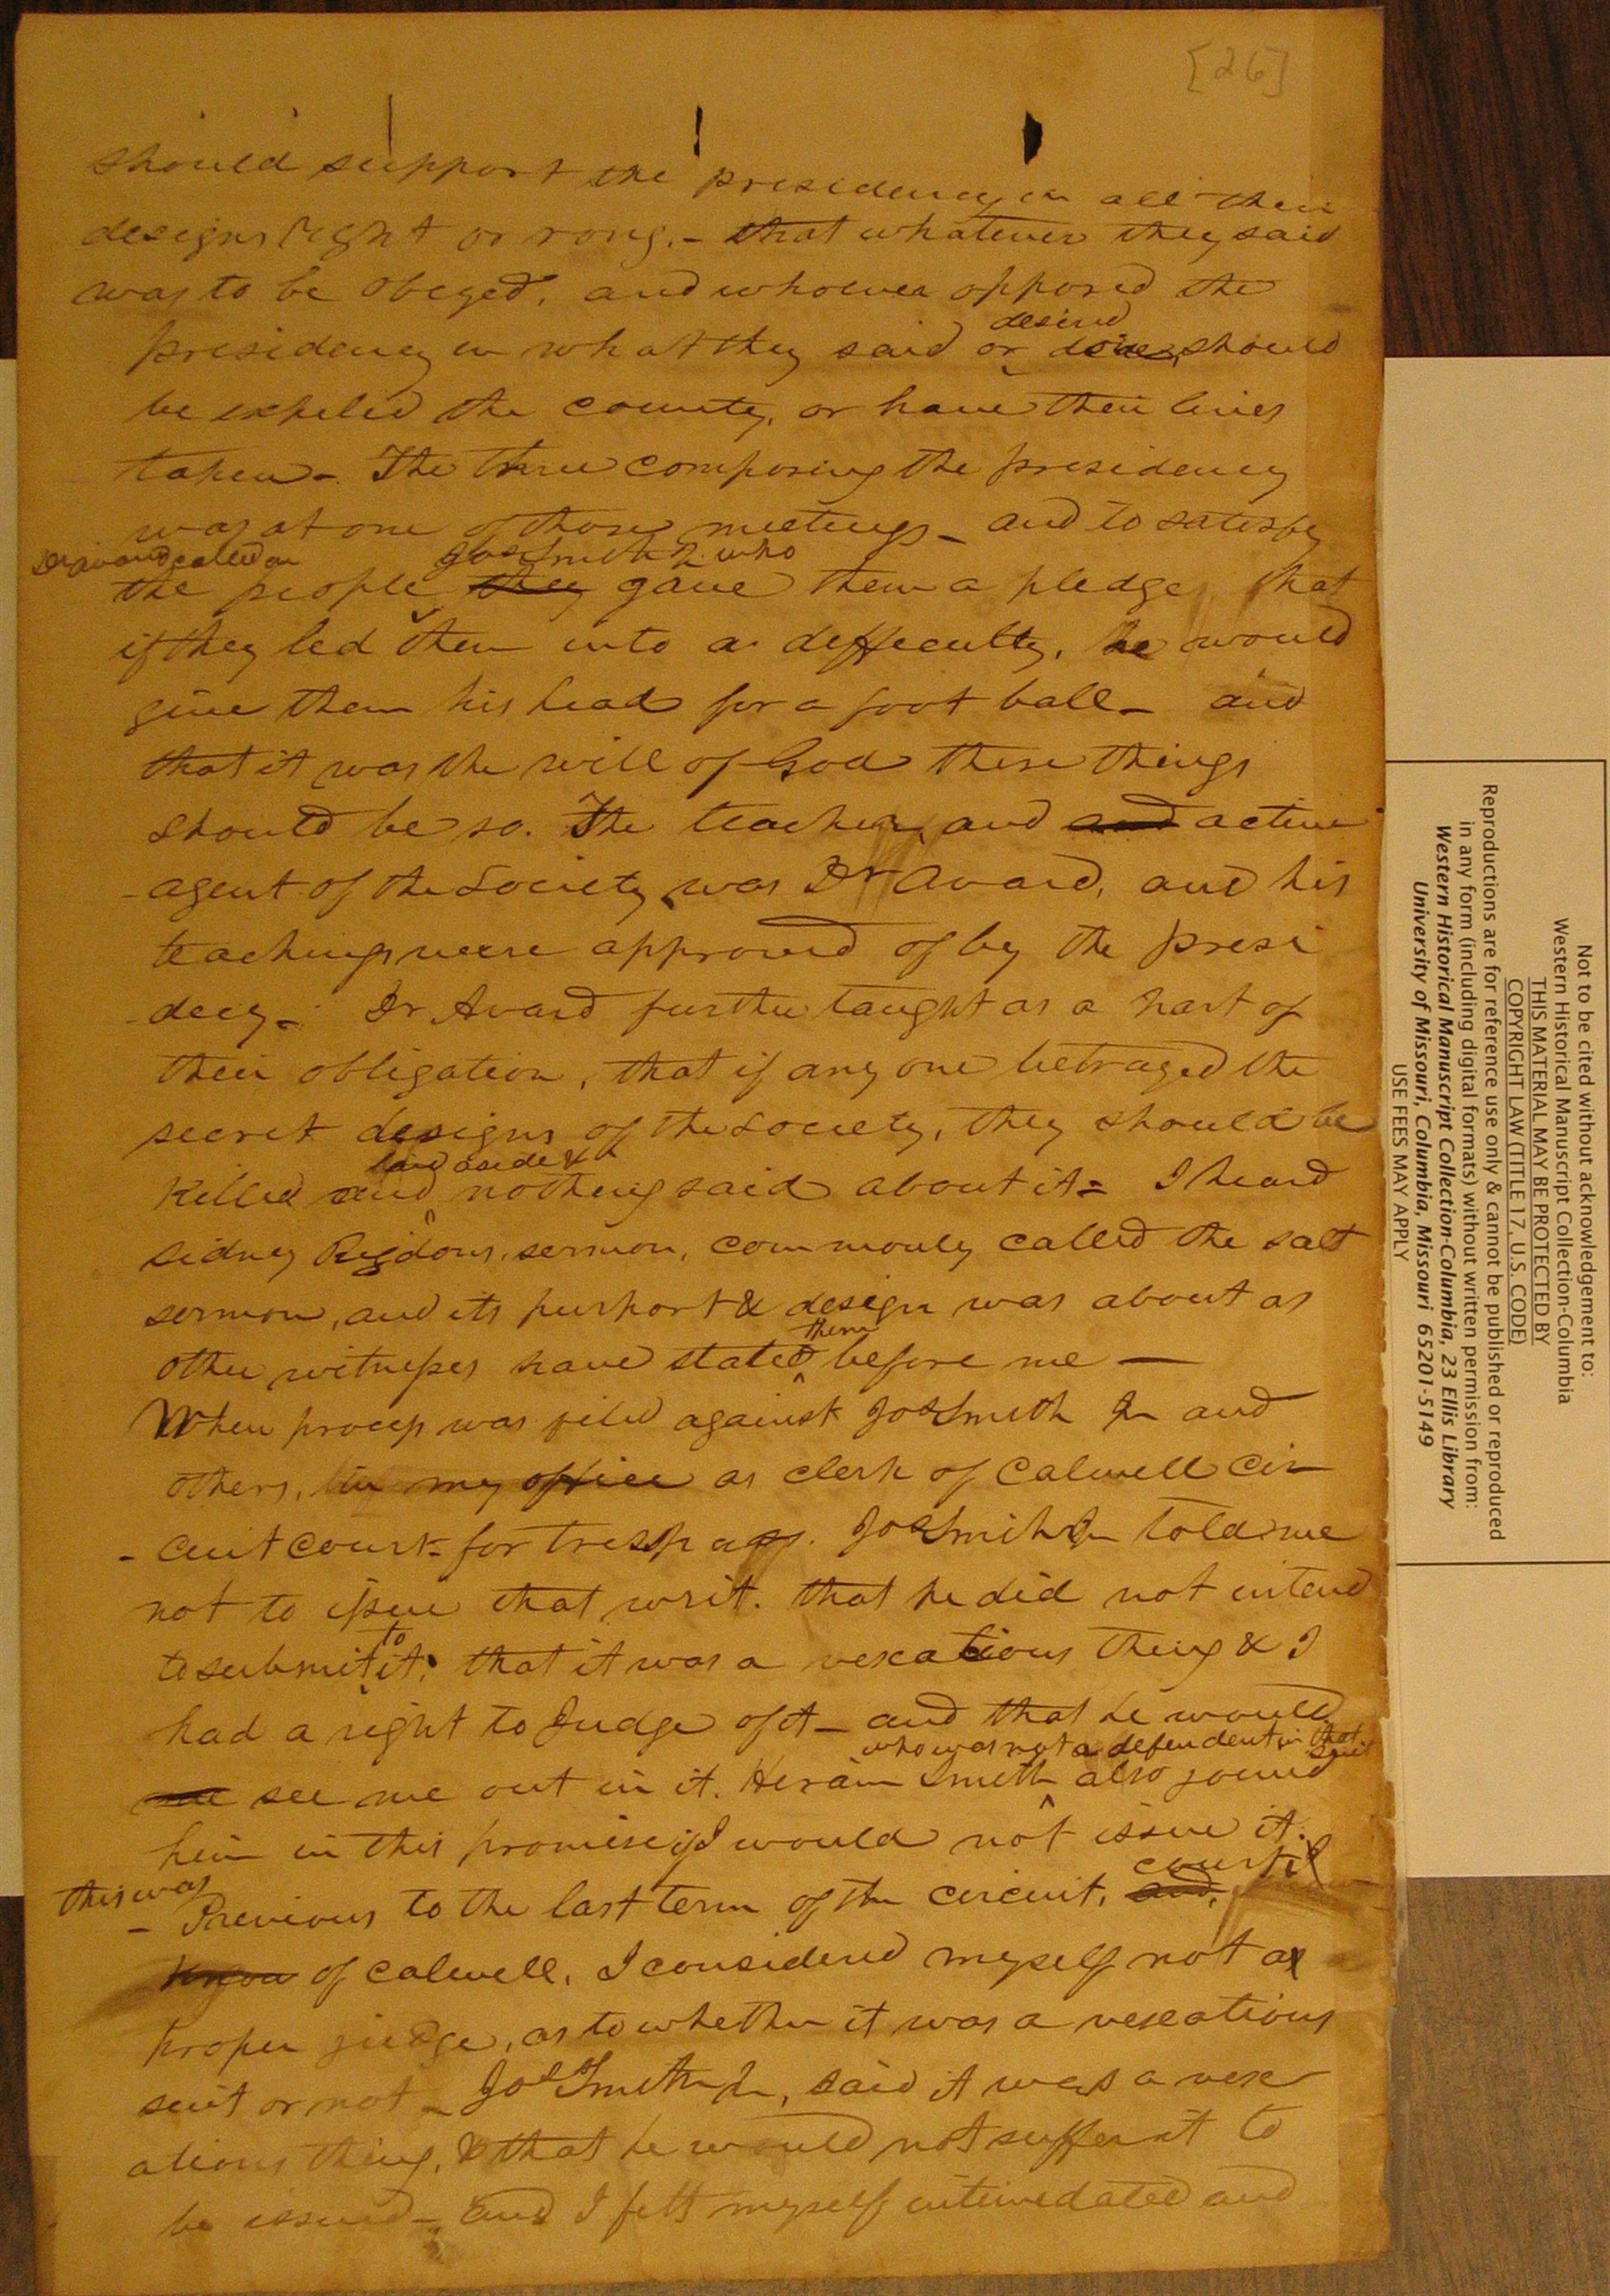 [26]
should support the presidency in all their
designs right or rong,- that whatever they said
was to be obeyed, and whoever opposed the
desired
presidency in what they said or should
be expeled the county, or have their lives
taken- The three composing the presidency
was at one of those meetings- and to satisfy
Dr avard called on Jos Smith Jr. who
the people they gave them a pledge, that
if they led them into a deffeculty, he would
give them his head for a foot ball- and
that it was the will of God these things
should be so. The teacher, and and active
agent of the Society was Dr Avard, and his
teachings were approved of by the presi
decy- Dr Avard further taught as a part of
their obligation, that if any one betrayed the
secret designs of the Society, they should be
laid aside &
killed and nothing said about it= I heard
Sidney Rigdons, sermon, commonly called the salt
sermon, and its purport & design was about as
them
other witnesses have stated before me —
When process was filed against Jos Smith Jr and
others, in my office as clerk of Calwell Cir
- cuit court- for tresspass. Jos Smith Jr told me
not to issue that writ. that he did not intend
to
to submit it; that it was a vexatious thing & I
had a right to Judge of it- and that he would
who was not a defendent in that suit
see see me out in it. Heram Smith also joined
him in this promise if I would not issue it.
this was court
- Previous to the last term of the circuit, and,
know of Calwell, I considered myself not a
proper judge, as to whether it was a vexatious
suit or not- Jos Smith Jr, said it was a vex
atious thing, & that he would not suffer it to
be issued- and I felt myself intimedated and
Not to be cited without acknowledgement to:
Western Historical Manuscript Collection-Columbia
THIS MATERIAL MAY BE PROTECTED BY
COPYRIGHT LAW (TITLE 17, U.S. CODE)
Reproductions are for reference use only & cannot be published or reproduced
in any form (including digital formats) without written permission from:
Western Historical Manuscript Collection-Columbia, 23 Ellis Library
University of Missouri, Columbia, Missouri 65201-5149
USE FEES MAY APPLY